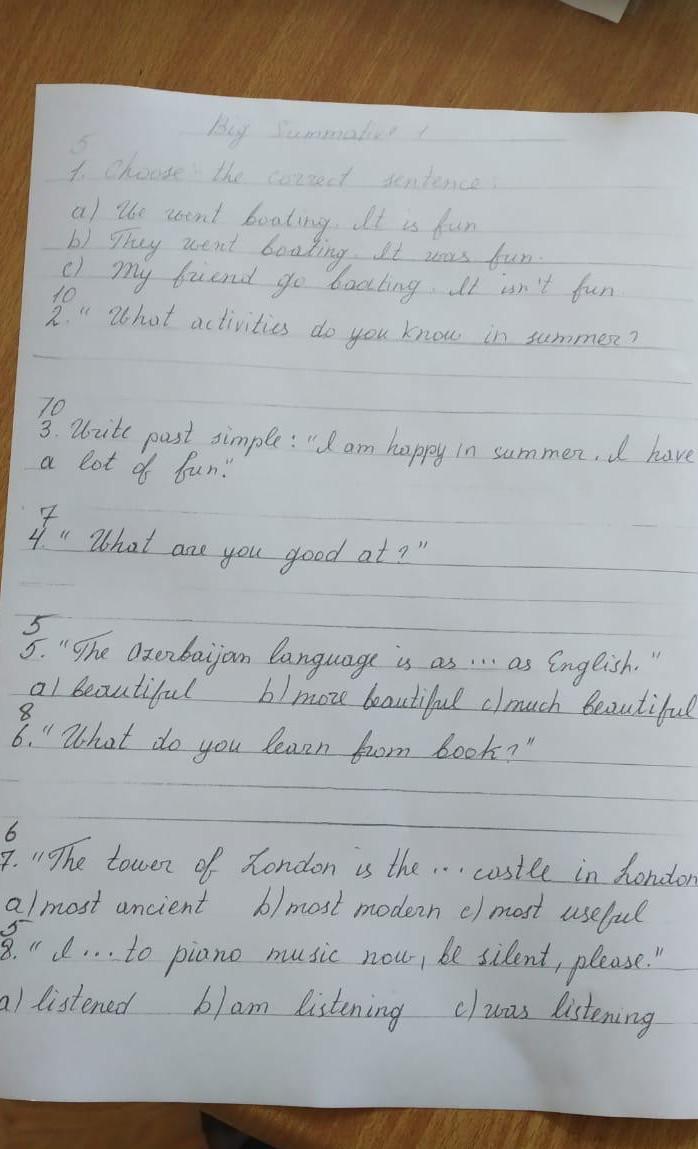 Big Summative 1
5
1. Choose the correct sentence:
a) We went boating. It is fun
b) They went boating. It was fun.
c) My friend go boating. It isn't fun
10
2. " What activities do you know in summer?
10
3. Write past simple: "I am happy in summer. I have
a lot of fun."
7
4. " What are you good at?"
5
5. "The Azerbaijan language is as ... as English."
a) beautiful b) more beautiful c) much beautiful
8
6. "What do you learn from book?"
6
7. "The tower of London is the ... castle in London
a) most ancient b) most modern c) most useful
5
8. " I ... to piano music now, be silent, please."
a) listened b) am listening c) was listening